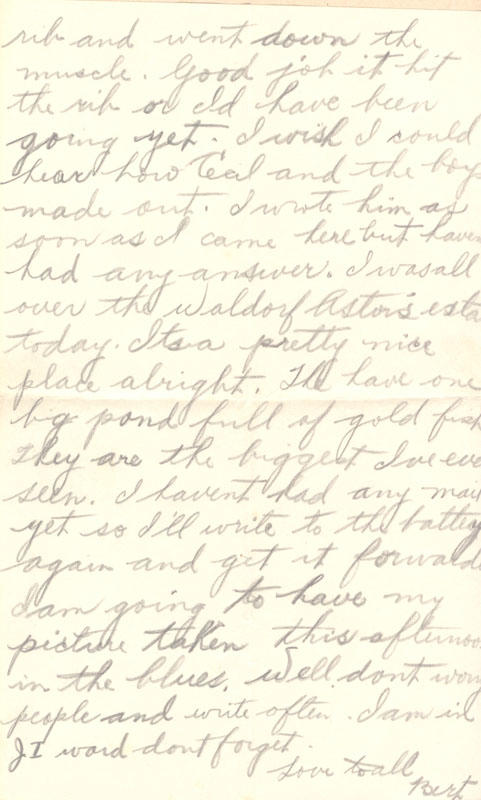 rib and went down the
muscle. Good job it hit
the rib or Id have been
going yet. I wish I could
hear how Ceal and the boys
made out. I wrote him as
soon as I came here but haven
had any answer. I was all
over the Waldorf Astor's esta
today. Its a pretty nice
place alright. The have one
big pond full of gold fish
They are the biggest Ive eve
seen. I havent had any mail
yet so I'll write to the battery
again and get it forwarde
I am going to have my
picture taken this afternoo
in the blues. Well dont worry
people and write often. I am in
J I ward dont forget.
Love to all
Bert